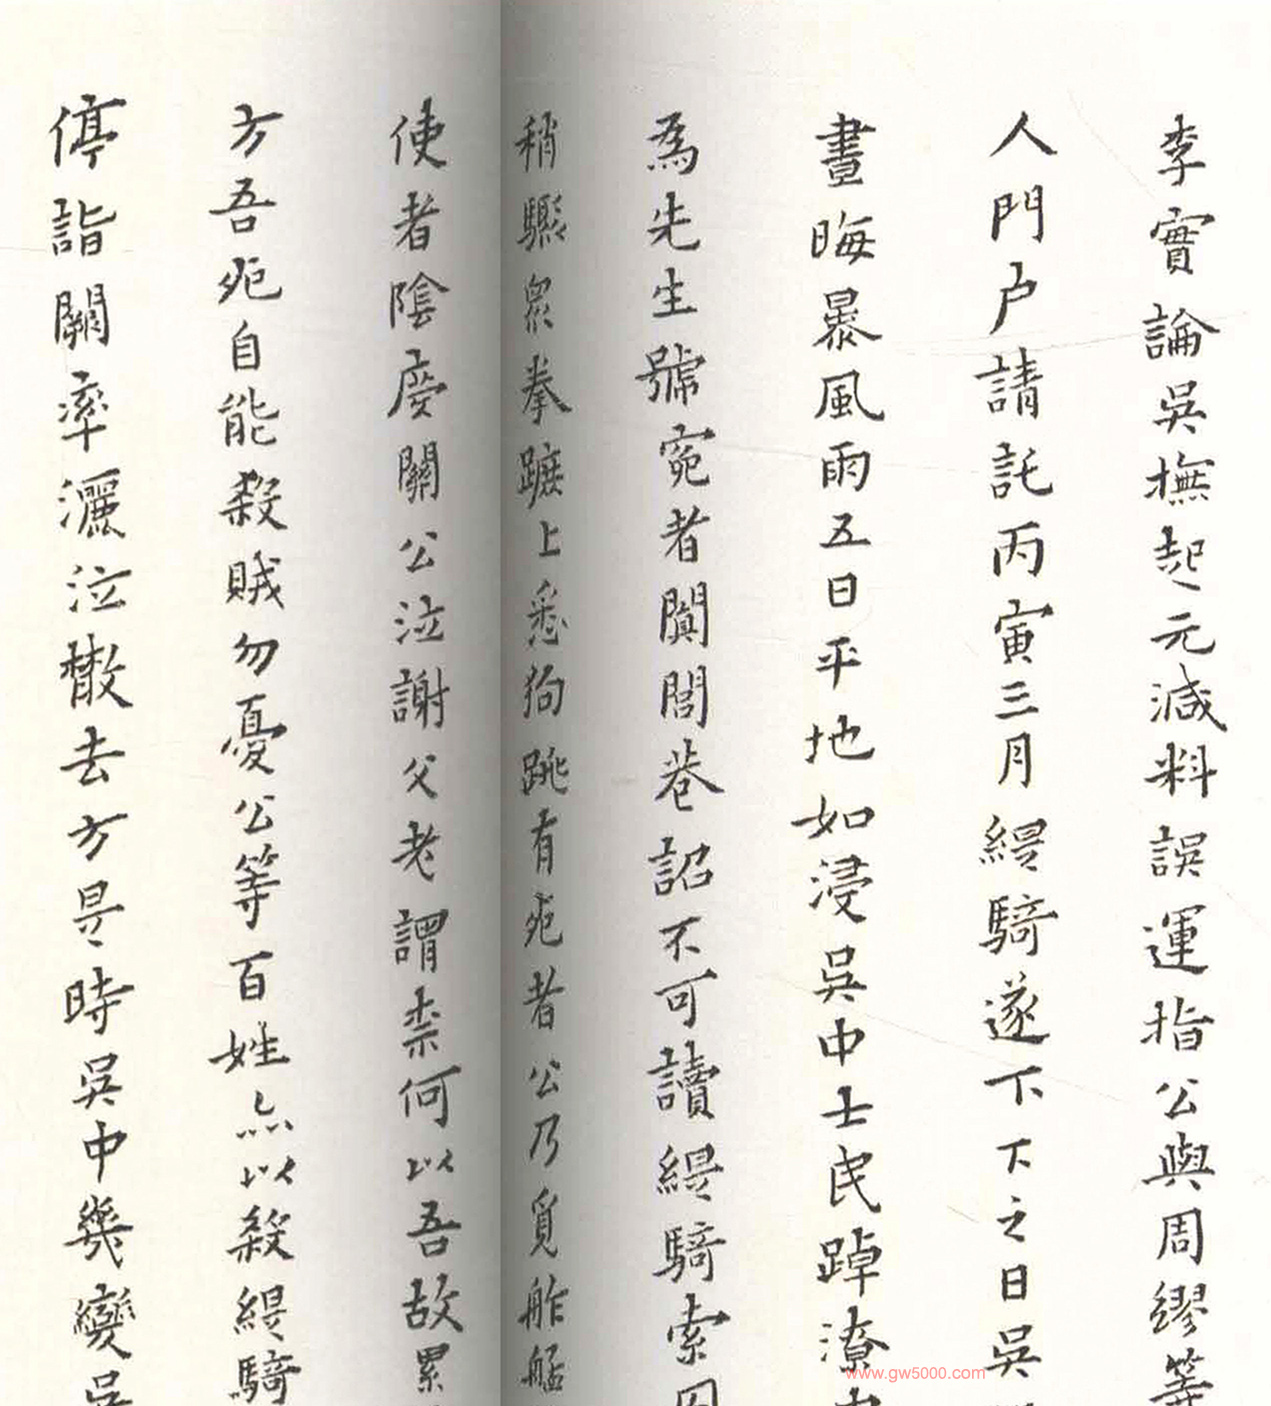 李實論吳撫起元減料誤運指公與周繆等
人門户請託丙寅三月緹騎遂下下之日吳
晝晦暴風雨五日平地如浸吳中士民踔潦
為先生號寃者闐閭巷詔不可讀緹騎索
稍驟眾拳蹠上悉狥跳有死者公乃覓舴艋
使者陰度關公泣謝父老謂柰何以吾故累
方吾死自能殺賊勿憂公等百姓亦以殺緹騎
停詣闕率灑泣散去方是時吳中幾變吳
www.gw5000.com